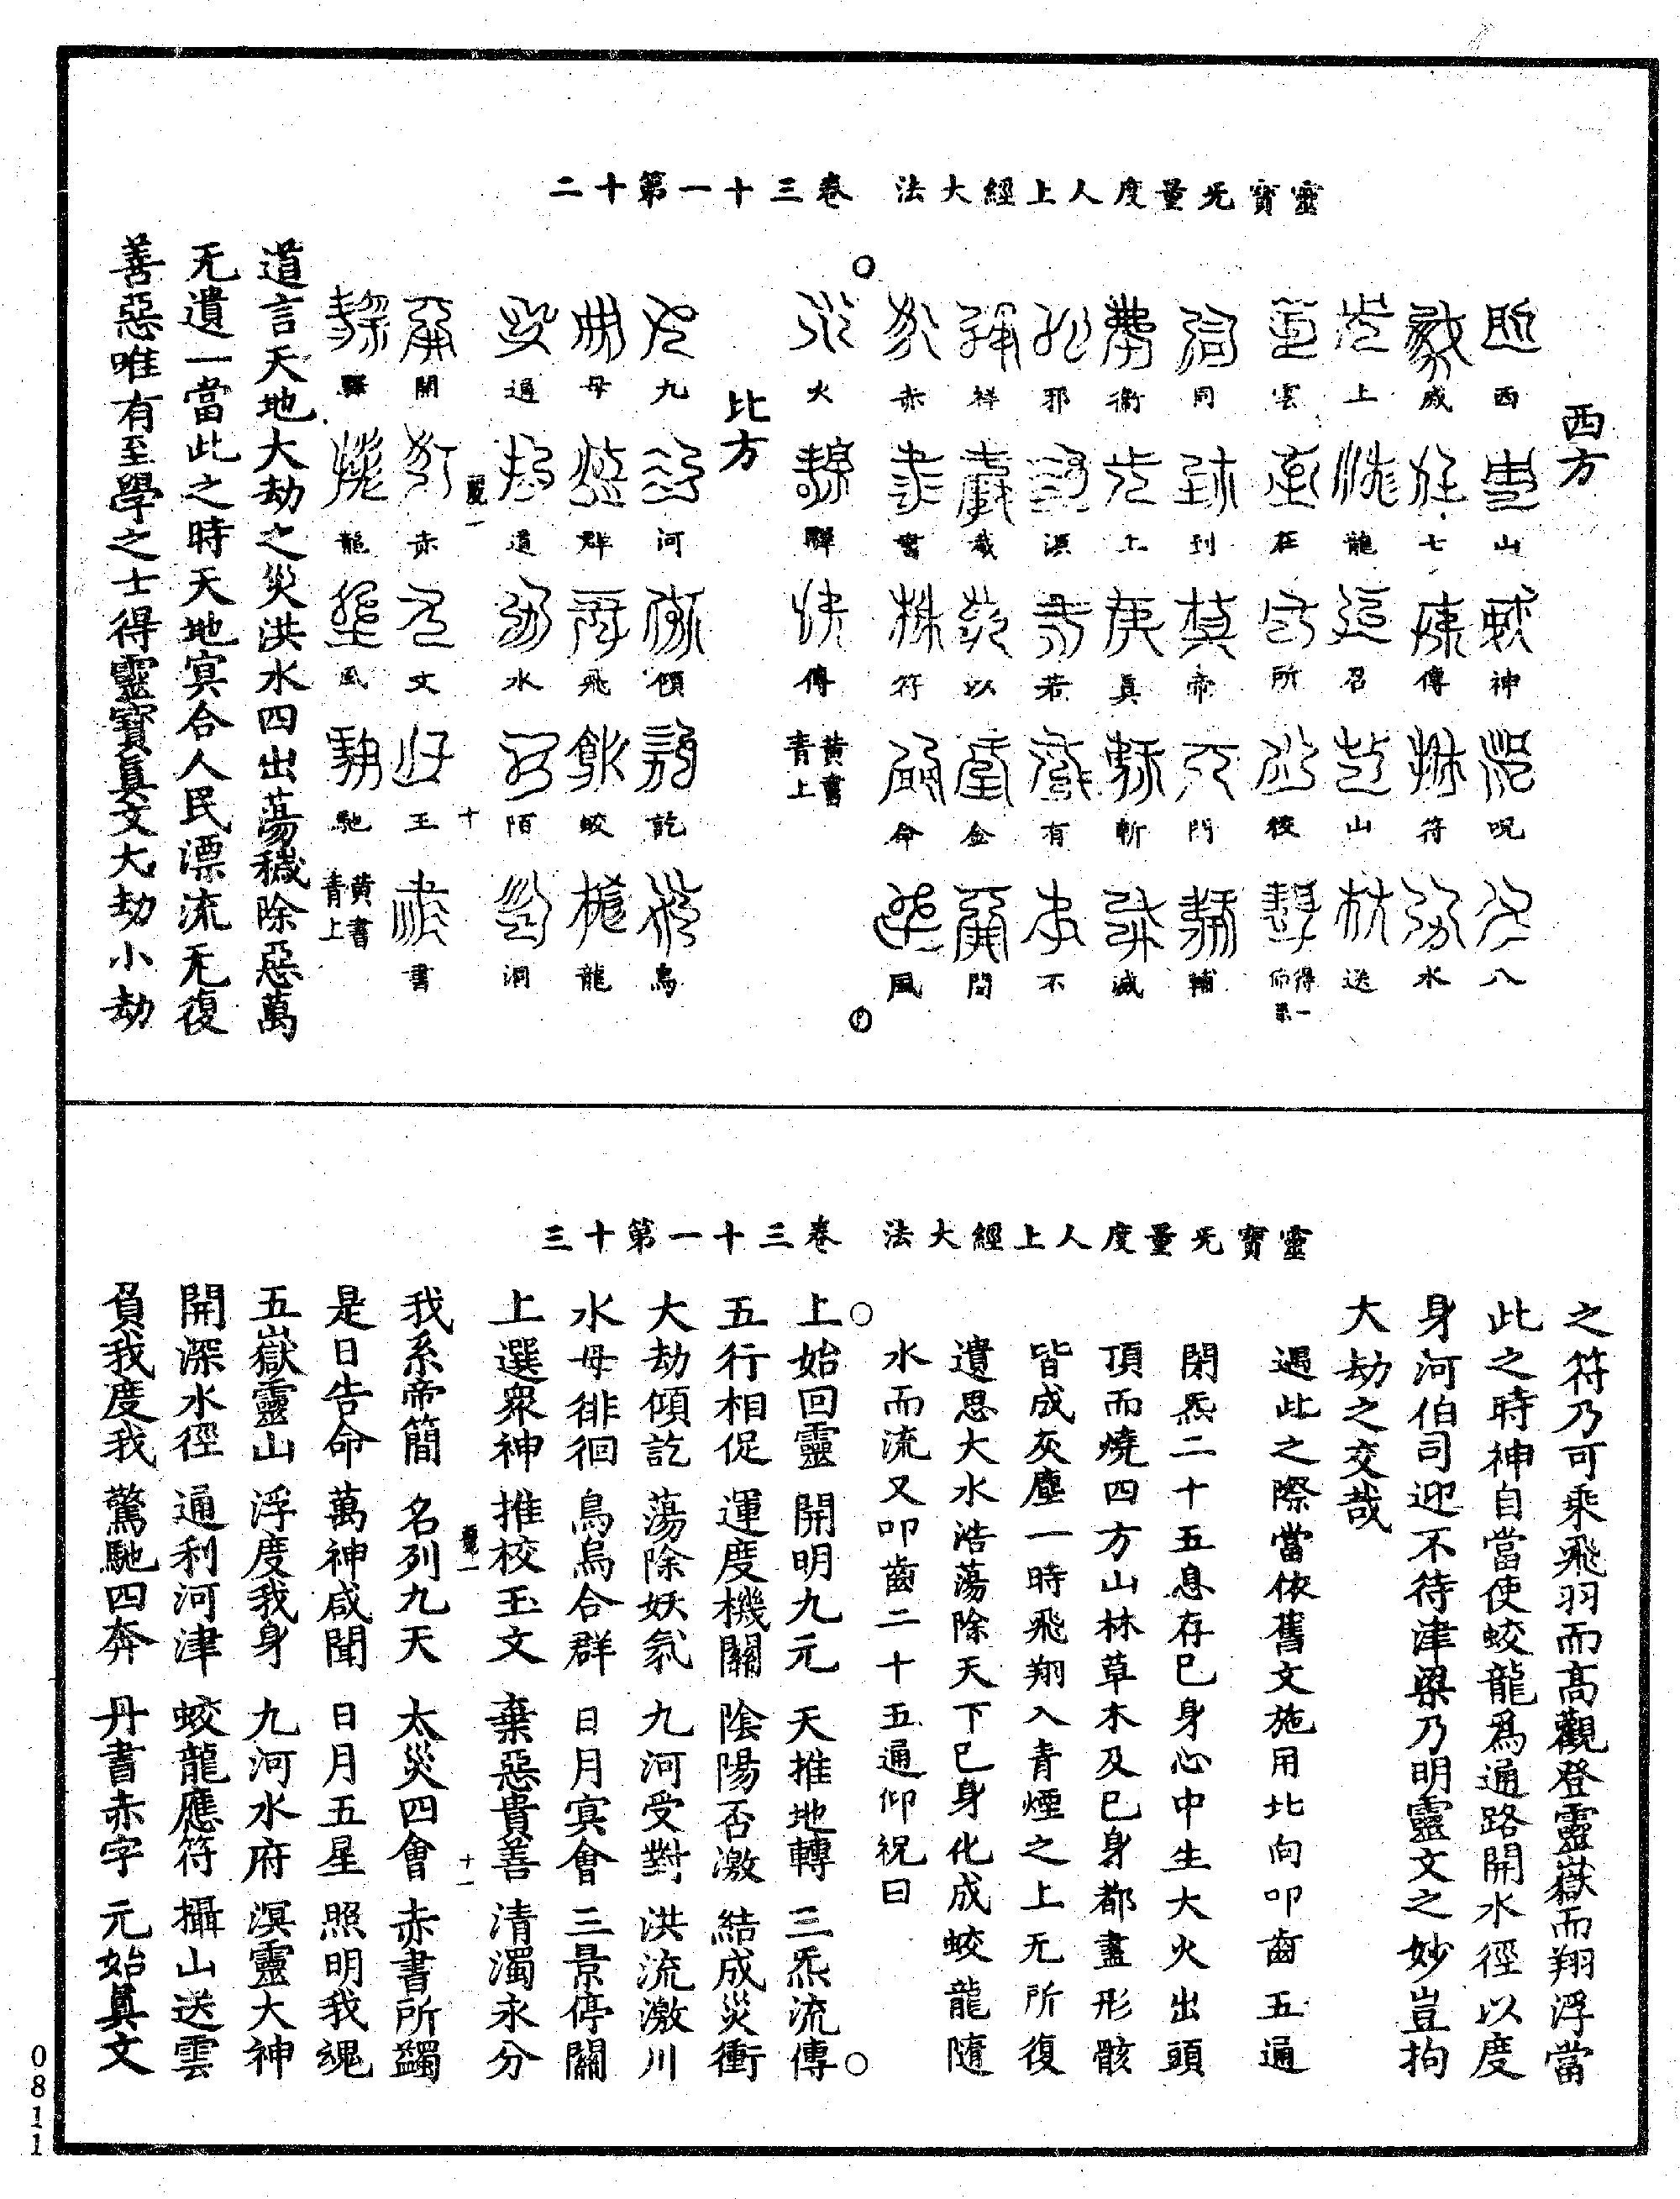 靈寶无量度人上經大法 卷三十一第十二
西方
西山神呪八
威七傳符水
上龍召山送
雲在所校
同到帝門輔
衛上真斬滅
邪源若有不
祥截以金
赤書符命風
火驛傳 黃書青上
比方
九河傾訖鳥
母群飛蛟龍
通道水陌洞
十
開赤文王書
驛龍風馳 黃書青上
道言天地大劫之災洪水四出蕩穢除惡萬
无遺一當此之時天地冥合人民漂流无復
善惡唯有至學之士得靈寶真文大劫小劫
靈寶无量度人上經大法 卷三十一第十三
之符乃可乘飛羽而高觀登靈嶽而翔浮當
此之時神自當使蛟龍為通路開水徑以度
身河伯司迎不待津梁乃明靈文之妙豈拘
大劫之交哉
遇此之際當依舊文施用北向叩齒五通
閉炁二十五息存已身心中生大火出頭
頂而燒四方山林草木及已身都盡形骸
皆成灰塵一時飛翔入青煙之上无所復
遺思大水浩蕩除天下已身化成蛟龍隨
水而流又叩齒二十五通仰祝曰
上始回靈 開明九元 天推地轉 三炁流傳
五行相促 運度機關 陰陽否激 結成災衝
大劫傾訖 蕩除妖氛 九河受對 洪流激川
水母徘徊 鳥烏合群 日月冥會 三景停關
上選眾神 推校玉文 棄惡貴善 清濁永分
十一
我系帝簡 名列九天 太災四會 赤書所蠲
是日告命 萬神咸聞 日月五星 照明我魂
五嶽靈山 浮度我身 九河水府 溟靈大神
開深水徑 通利河津 蛟龍應符 攝山送雲
負我度我 驚馳四奔 丹書赤字 元始真文
0811